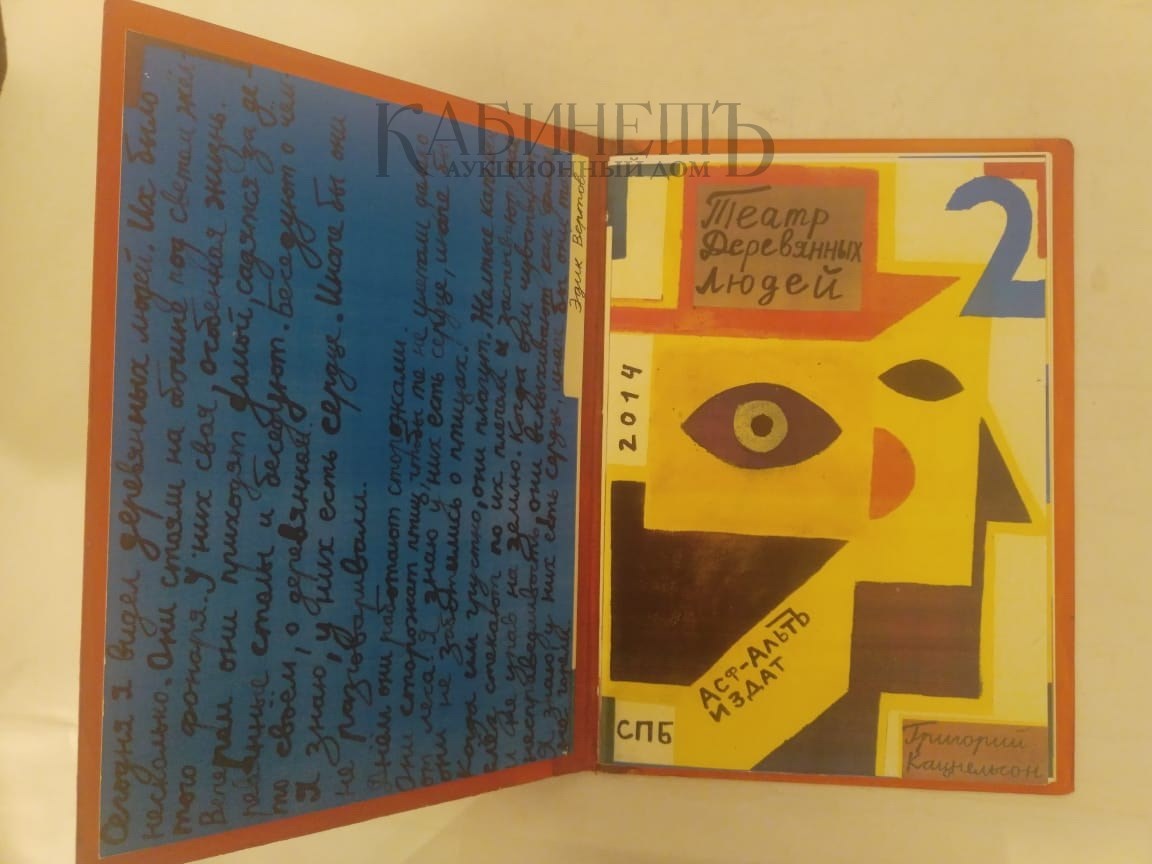 КАБИНЕТЪ
АУКЦИОННЫЙ ДОМ
Сегодня я видел деревянных людей. Их было
несколько. Они стояли на обочине под светом жёл-
того фонаря. У них свая особенная жизнь.
Вечерам они приходят домой, садятся за де-
ревянные столы и беседуют. Беседуют о чём-
то своём, о деревянном.
Я знаю, у них есть сердце. Иначе бы они
не разговаривали.
Днём они работают сторожами.
Они сторожат птиц, чтобы те не улетали
леса. Я знаю у них есть сердце, иначе бы
они не заботились о птицах.
Когда им грустно, они плачут. Желтые
слёз стекают по их плечам и застывают
не упав на землю. Когда они
несправедливость они вспыхивают как
Я знаю, у них есть сердце, иначе бы они
Эдик Вертов
Театр
Деревянных
Людей
2
2014
АСФ-АЛЬТЪ
ИЗДАТ
СПБ
Григорий
Кацнельсон